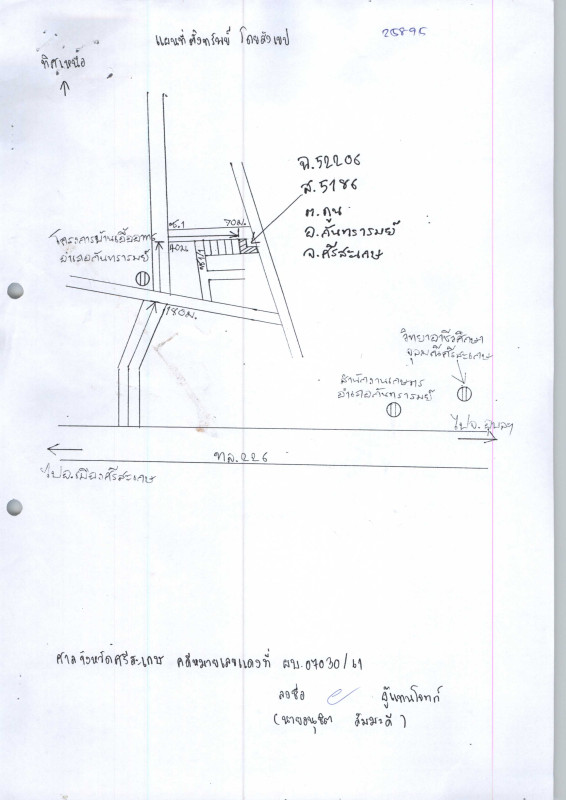 แผนที่ตั้งทรัพย์ โดยสังเขป
25895
ทิศเหนือ
ฉ.52206
ส.5186
ต.ดูน
อ.กันทรารมย์
จ.ศรีสะเกษ
ซ.1
70ม.
โครงการบ้านเอื้ออาทร
อำเภอกันทรารมย์
40ม.
ซ.1/1
180ม.
วิทยาอาชีวศึกษา
จุลมณีศรีสะเกษ
สำนักงานเกษตร
อำเภอกันทรารมย์
ไปจ.อุบลฯ
ทล.226
ไปอ.เมืองศรีสะเกษ
ศาลจังหวัดศรีสะเกษ คดีหมายเลขแดงที่ ผบ.07030/61
ลงชื่อ ผู้แทนโจทก์
(นายอนุชิต